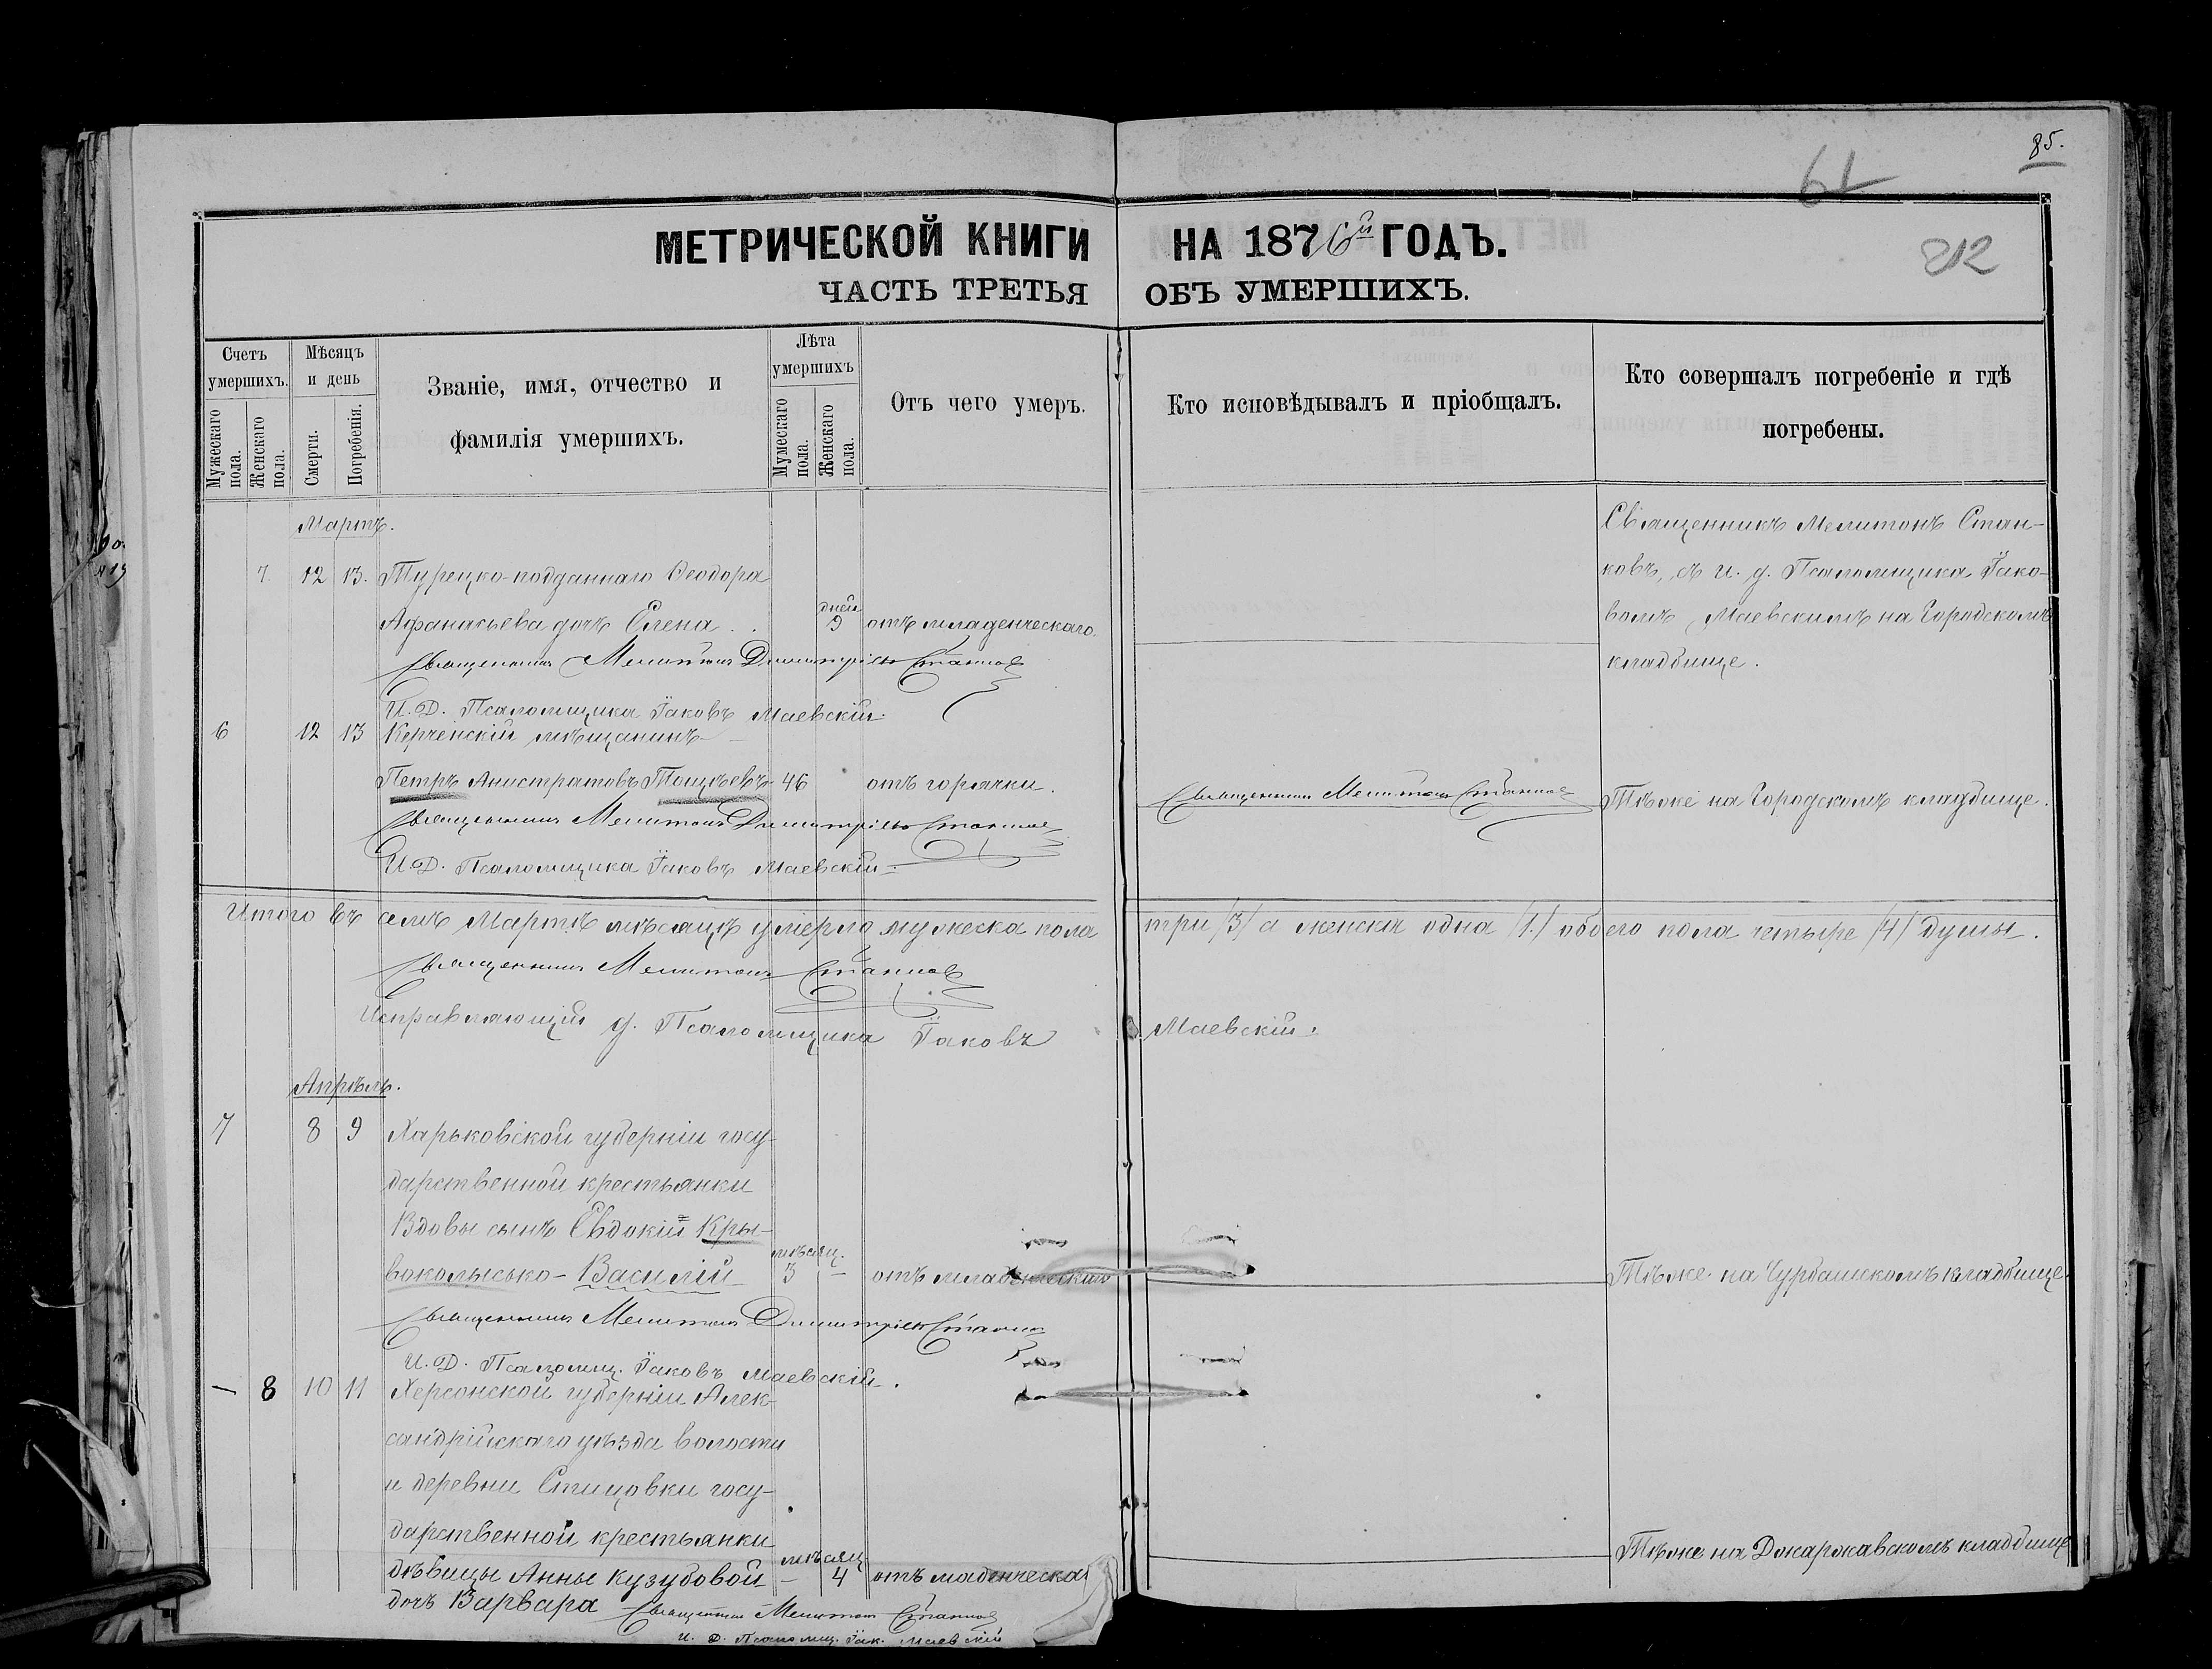 85.
61
212
МЕТРИЧЕСКОЙ КНИГИ НА 1876й ГОДЪ.
ЧАСТЬ ТРЕТЬЯ ОБЪ УМЕРШИХЪ.
Счетъ умершихъ.
Мужескаго пола.
Женскаго пола.
Мѣсяцъ и день
Смерти.
Погребенія.
Званіе, имя, отчество и
фамилія умершихъ.
Лѣта умершихъ
Мужескаго пола.
Женскаго пола.
Отъ чего умеръ.
Кто исповѣдывалъ и пріобщалъ.
Кто совершалъ погребеніе и гдѣ
погребены.
Мартъ.
7. 12 13. Турецко-подданнаго Ѳеодора
Афанасьева дочь Елена . . дней 9 отъ младенческаго.
Священникъ Мелитонъ Димитріевъ Станковъ
И. Д. Псаломщика Іаковъ Маевскій.
Священникъ Мелитонъ Стан-
ковъ, съ и. д. Псаломщика Іако-
вомъ Маевскимъ на Городскомъ
кладбище.
6 12 13 Керченскій мѣщанинъ
Петръ Анистратовъ 46 отъ горячки.
Священникъ Мелитонъ Станковъ
Тѣже на Городскомъ кладбище.
Священникъ Мелитонъ Димитріевъ Станковъ
И. Д. Псаломщика Іаковъ Маевскій
Итого въ семъ Мартѣ мѣсяцѣ умерло мужеска пола три /3/ а женска одна /1./ обоего пола четыре /4/ душы.
Священникъ Мелитонъ Станковъ
Исправляющій д. Псаломщика Іаковъ Маевскій.
Апрѣль.
7 8 9 Харьковской губерніи госу-
дарственной крестьянки
Вдовы сынъ Евдокіи Кры-
воколысько - Василій мѣсяц. 3 — отъ младенческаго
Тѣже на Чурбашскомъ кладбище.
Священникъ Мелитонъ Димитріевъ Станков
И. Д. Псаломщ. Іаковъ Маевскій.
— 8 10 11 Херсонской губерніи Алек-
сандрійскаго уѣзда волости
и деревни госу-
дарственной крестьянки
дѣвицы Анны Кузубовой — мѣсяц 4 отъ маденческа
дочь Варвара
Тѣже на Джаржавскомъ кладбище
Священникъ Мелитонъ Станковъ
И. Д. Псаломщ. Іак. Маевскій